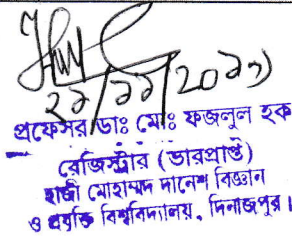 ২৯/১১/20২১
প্রফেসর ডাঃ মোঃ ফজলুল হক
রেজিস্ট্রার (ভারপ্রাপ্ত)
হাজী মোহাম্মদ দানেশ বিজ্ঞান
ও প্রযুক্তি বিশ্ববিদ্যালয়, দিনাজপুর।